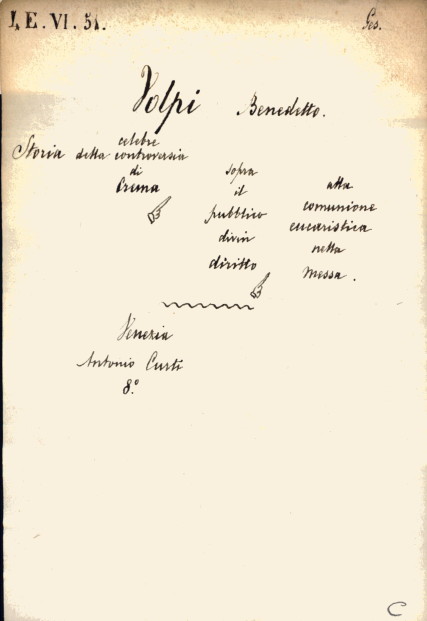 I, E. VI. 51.
Ges.
Volpi Benedetto.
Storia della celebre controversia
di
Crema
sopra
il
pubblico
divin
diritto
alla
comunione
eucaristica
nella
messa.
Venezia
Antonio Curti
8.°
C